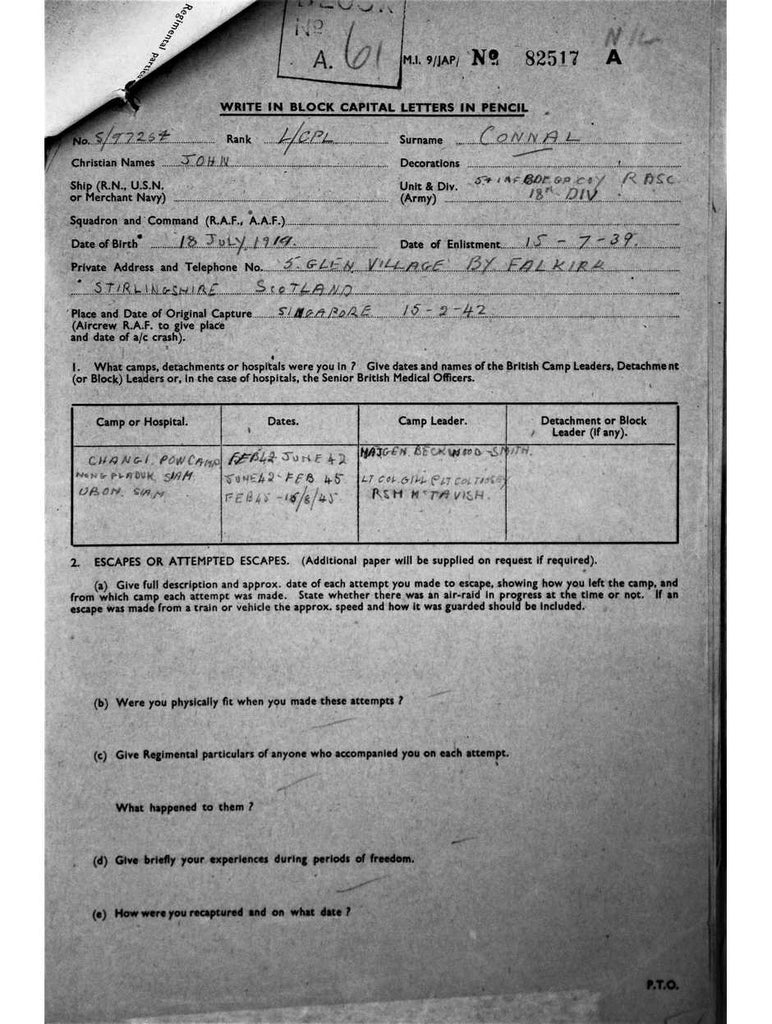 Regimental parties
BLOCK
No
A. 61
M.I. 9/JAP/ No. 82517 A
WRITE IN BLOCK CAPITAL LETTERS IN PENCIL
No. S/ Rank L/CPL Surname CONNAL
Christian Names JOHN Decorations
Ship (R.N., U.S.N. or Merchant Navy) Unit & Div. (Army) RASC
18TH DIV
Squadron and Command (R.A.F., A.A.F.)
Date of Birth 18 JULY 1919. Date of Enlistment 15 - 7 - 39.
Private Address and Telephone No. 5. GLEN VILLAGE BY FALKIRK
STIRLINGSHIRE SCOTLAND
Place and Date of Original Capture SINGAPORE 15-2-42
(Aircrew R.A.F. to give place
and date of a/c crash).
1. What camps, detachments or hospitals were you in ? Give dates and names of the British Camp Leaders, Detachment
(or Block) Leaders or, in the case of hospitals, the Senior British Medical Officers.
Camp or Hospital. Dates. Camp Leader. Detachment or Block
Leader (if any).
CHANGI. POW CAMP FEB 42 JUNE 42 MAJ GEN. BECKWOOD-SMITH.
NONG PLADUK. SIAM JUNE 42-FEB 45 LT COL GILL LT COL TOOSEY
UBON. SIAM FEB 45 -15/8/45 RSM McTAVISH.
2. ESCAPES OR ATTEMPTED ESCAPES. (Additional paper will be supplied on request if required).
(a) Give full description and approx. date of each attempt you made to escape, showing how you left the camp, and
from which camp each attempt was made. State whether there was an air-raid in progress at the time or not. If an
escape was made from a train or vehicle the approx. speed and how it was guarded should be included.
(b) Were you physically fit when you made these attempts ?
(c) Give Regimental particulars of anyone who accompanied you on each attempt.
What happened to them ?
(d) Give briefly your experiences during periods of freedom.
(e) How were you recaptured and on what date ?
P.T.O.